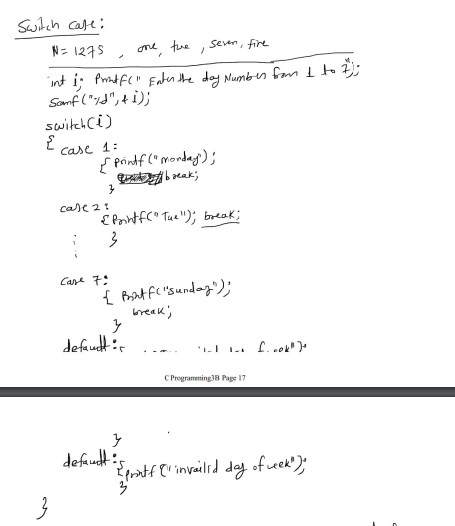 Switch case:
N = 1275 , one, tue, seven, five
int i; Printf(" Enter the day Number from 1 to 7");
Scanf("%d", & i);
switch(i)
{
case 1:
{ printf("monday");
break;
}
case 2:
{ Printf("Tue"); break;
}
case 7:
{ Printf("sunday");
break;
}
default :{
C Programming3B Page 17
}
default :{
printf("invailid day of week");
}
}